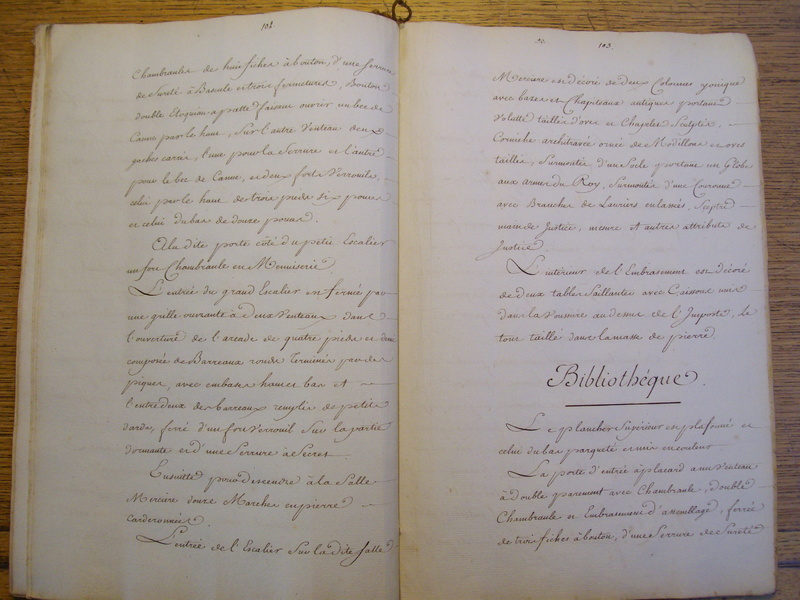 102
Chambranles de huit fiches à bouton, d'une Serrure
de Sureté à Bascule et trois fermetures, Bouton
double Eloquion a patte faisant ouvrir un bec de
Canne par le haut, Sur l'autre Venteau deux
gaches carrée, l'une pour la Serrure et l'autre
pour le bec de Canne, et deux forts Verrouils,
celui par le haut de trois pieds six pouces
et celui du bas de douze pouces.
A la dite porte côté du petit Escalier
un fort Chambranle en Menuiserie.
L'entrée du grand Escalier est fermée par
une grille ouvrante à deux Venteaux dans
l'ouverture de l'arcade de quatre pieds et demi
composée de Barreaux ronds Terminés par des
piques, avec embases haut et bas et
l'entredeux des barreaux remplis de petits
dards, ferré d'un fort Verrouil Sur la partie
dormante et d'une Serrure à Secret.
Ensuitte pour descendre à la Salle
Mercure douze Marches en pierre
carderonnées.
L'entrée de l'Escalier Sur la dite Salle
103.
Mercure est décoré de deux Colonnes yonique
avec bazes et Chapiteaux antiques portant
Volutte taillés d'oves et Chapelet Sculptés,
Corniche architravée ornée de Modillons et oves
taillés, Surmontés d'un Socle portant un Globe
aux armes du Roy, Surmontés d'une Couronne
avec Branches de Lauriers enlassés, Sceptre
main de Justice, mesure et autres attributs de
Justice.
L'intérieur de l'Embrasement est décoré
de deux tables Saillantes avec Caissons unis
dans la Voussure au dessus de l'Imposte, le
tout taillé dans la masse de pierre.
Bibliothéque.
Le plancher Supérieur est plafonné et
celui du bas parqueté et mis en couleur.
La porte d'entrée à placard a un Venteau
à double parement avec Chambranle, double
Chambranle et Embrasement d'assemblage, ferrée
de trois fiches à bouton, d'une Serrure de Sureté